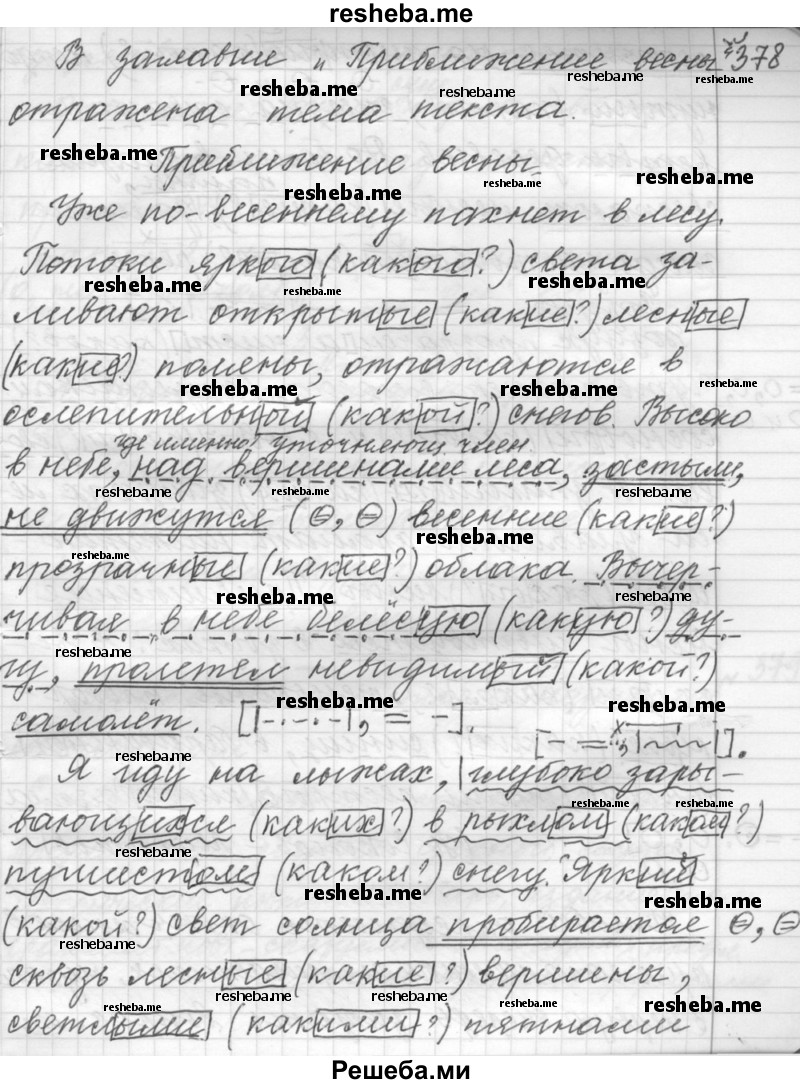 resheba.me
В заглавии „Приближение весны" №378
отражена тема текста.
Приближение весны.
Уже по-весеннему пахнет в лесу.
Потоки яркого (какого?) света за-
ливают открытые (какие?) лесные
(какие?) поляны, отражаются в
ослепительной (какой?) снегов. Высоко
где именно? уточняющ. член.
в небе, над вершинами леса, застыли,
не движутся (Ө, Ө) весенние (какие?)
прозрачные (какие?) облака. Вычер-
чивая в небе белёсую (какую?) ду-
гу, пролетел невидимый (какой?)
самолёт. [|-.-.-|, = -].
[- = х, |~~|].
Я иду на лыжах, |глубоко зары-
вающихся (каких?) в рыхлом (каком?)
пушистом (каком?) снегу. Яркий
(какой?) свет солнца пробирается Ө, Ө
сквозь лесные (какие?) вершины,
светлыми (какими?) пятнами
Решеба.ми